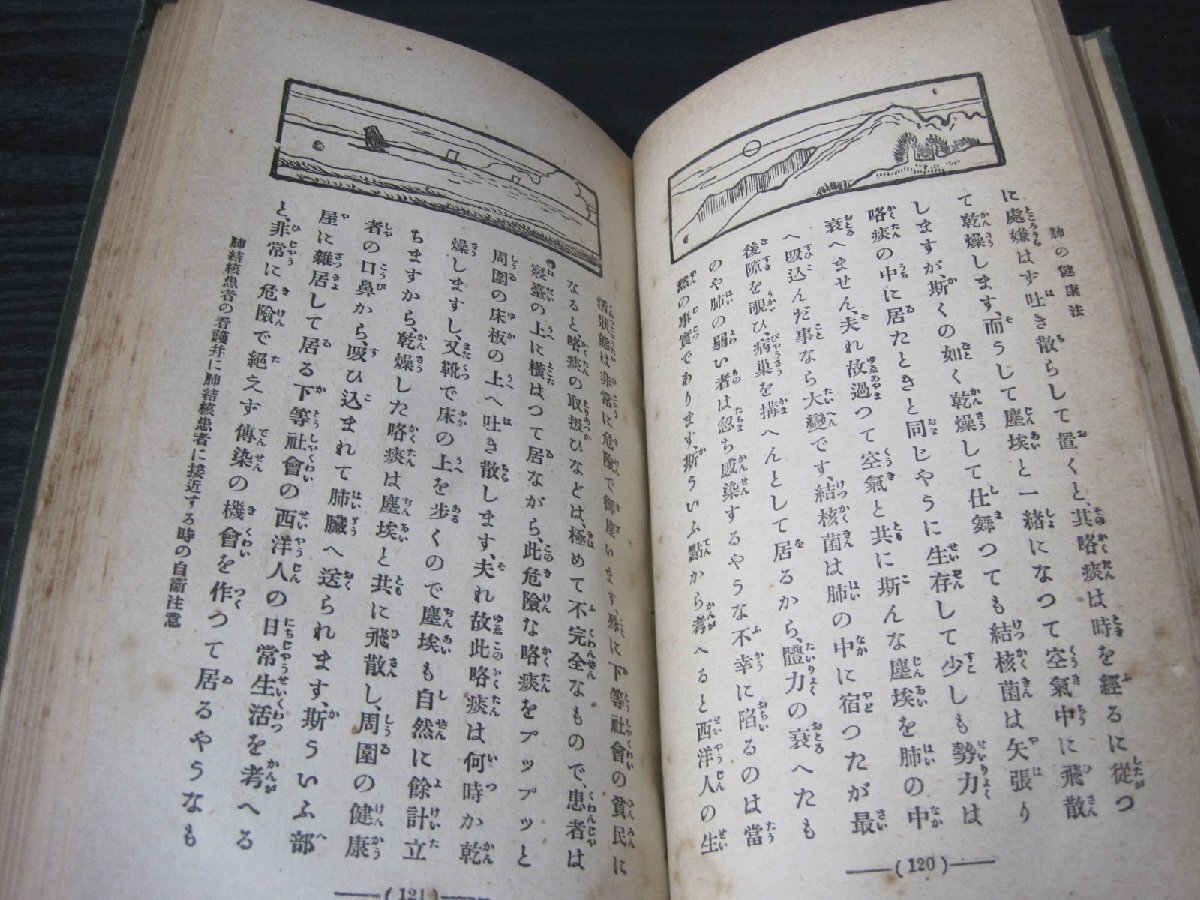 肺の健康法
に處嫌はず吐き散らして置くと、其咯痰は時を經るに從つ
て乾燥します、而うして塵埃と一緒になつて空氣中に飛散
しますが、斯くの如く乾燥して仕舞つても結核菌は矢張り
咯痰の中に居たときと同じやうに生存して少しも勢力は
衰へません、夫れ故過つて空氣と共に斯んな塵埃を肺の中
へ吸込んだ事なら大變です、結核菌は肺の中に宿つたが最
後隙を覗ひ、病巣を搆へんとして居るから、體力の衰へたも
のや肺の弱い者は忽ち感染するやうな不幸に陷るのは當
然の事實であります、斯ういふ點から考へると西洋人の生
(120)
活狀態は非常に危險で御座います、殊に下等社會の貧民に
なると、咯痰の取扱ひなどは、極めて不完全なもので、患者は
寢臺の上に横はつて居ながら此危險な咯痰をプップッと
周圍の床板の上へ吐き散します、夫れ故此咯痰は何時か乾
燥しますし、又靴で床の上を歩くので塵埃も自然に餘計立
ちますから、乾燥した咯痰は塵埃と共に飛散し、周圍の健康
者の口鼻から、吸ひ込まれて肺臟へ送られます、斯ういふ部
屋に雜居して居る下等社會の西洋人の日常生活を考へる
と、非常に危險で絕えず傳染の機會を作つて居るやうなも
肺結核患者の看護并に肺結核患者に接近する時の自衞注意
(121)